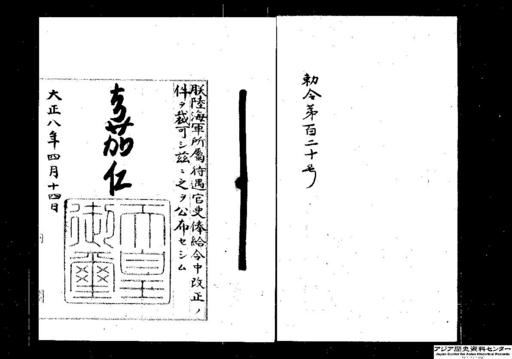 勅令第百二十号
朕陸海軍所属待遇官吏俸給令中改正ノ
件ヲ裁可シ玆ニ之ヲ公布セシム
嘉仁
天皇
御璽
大正八年四月十四日
アジア歴史資料センター
Japan Center for Asian Historical Records